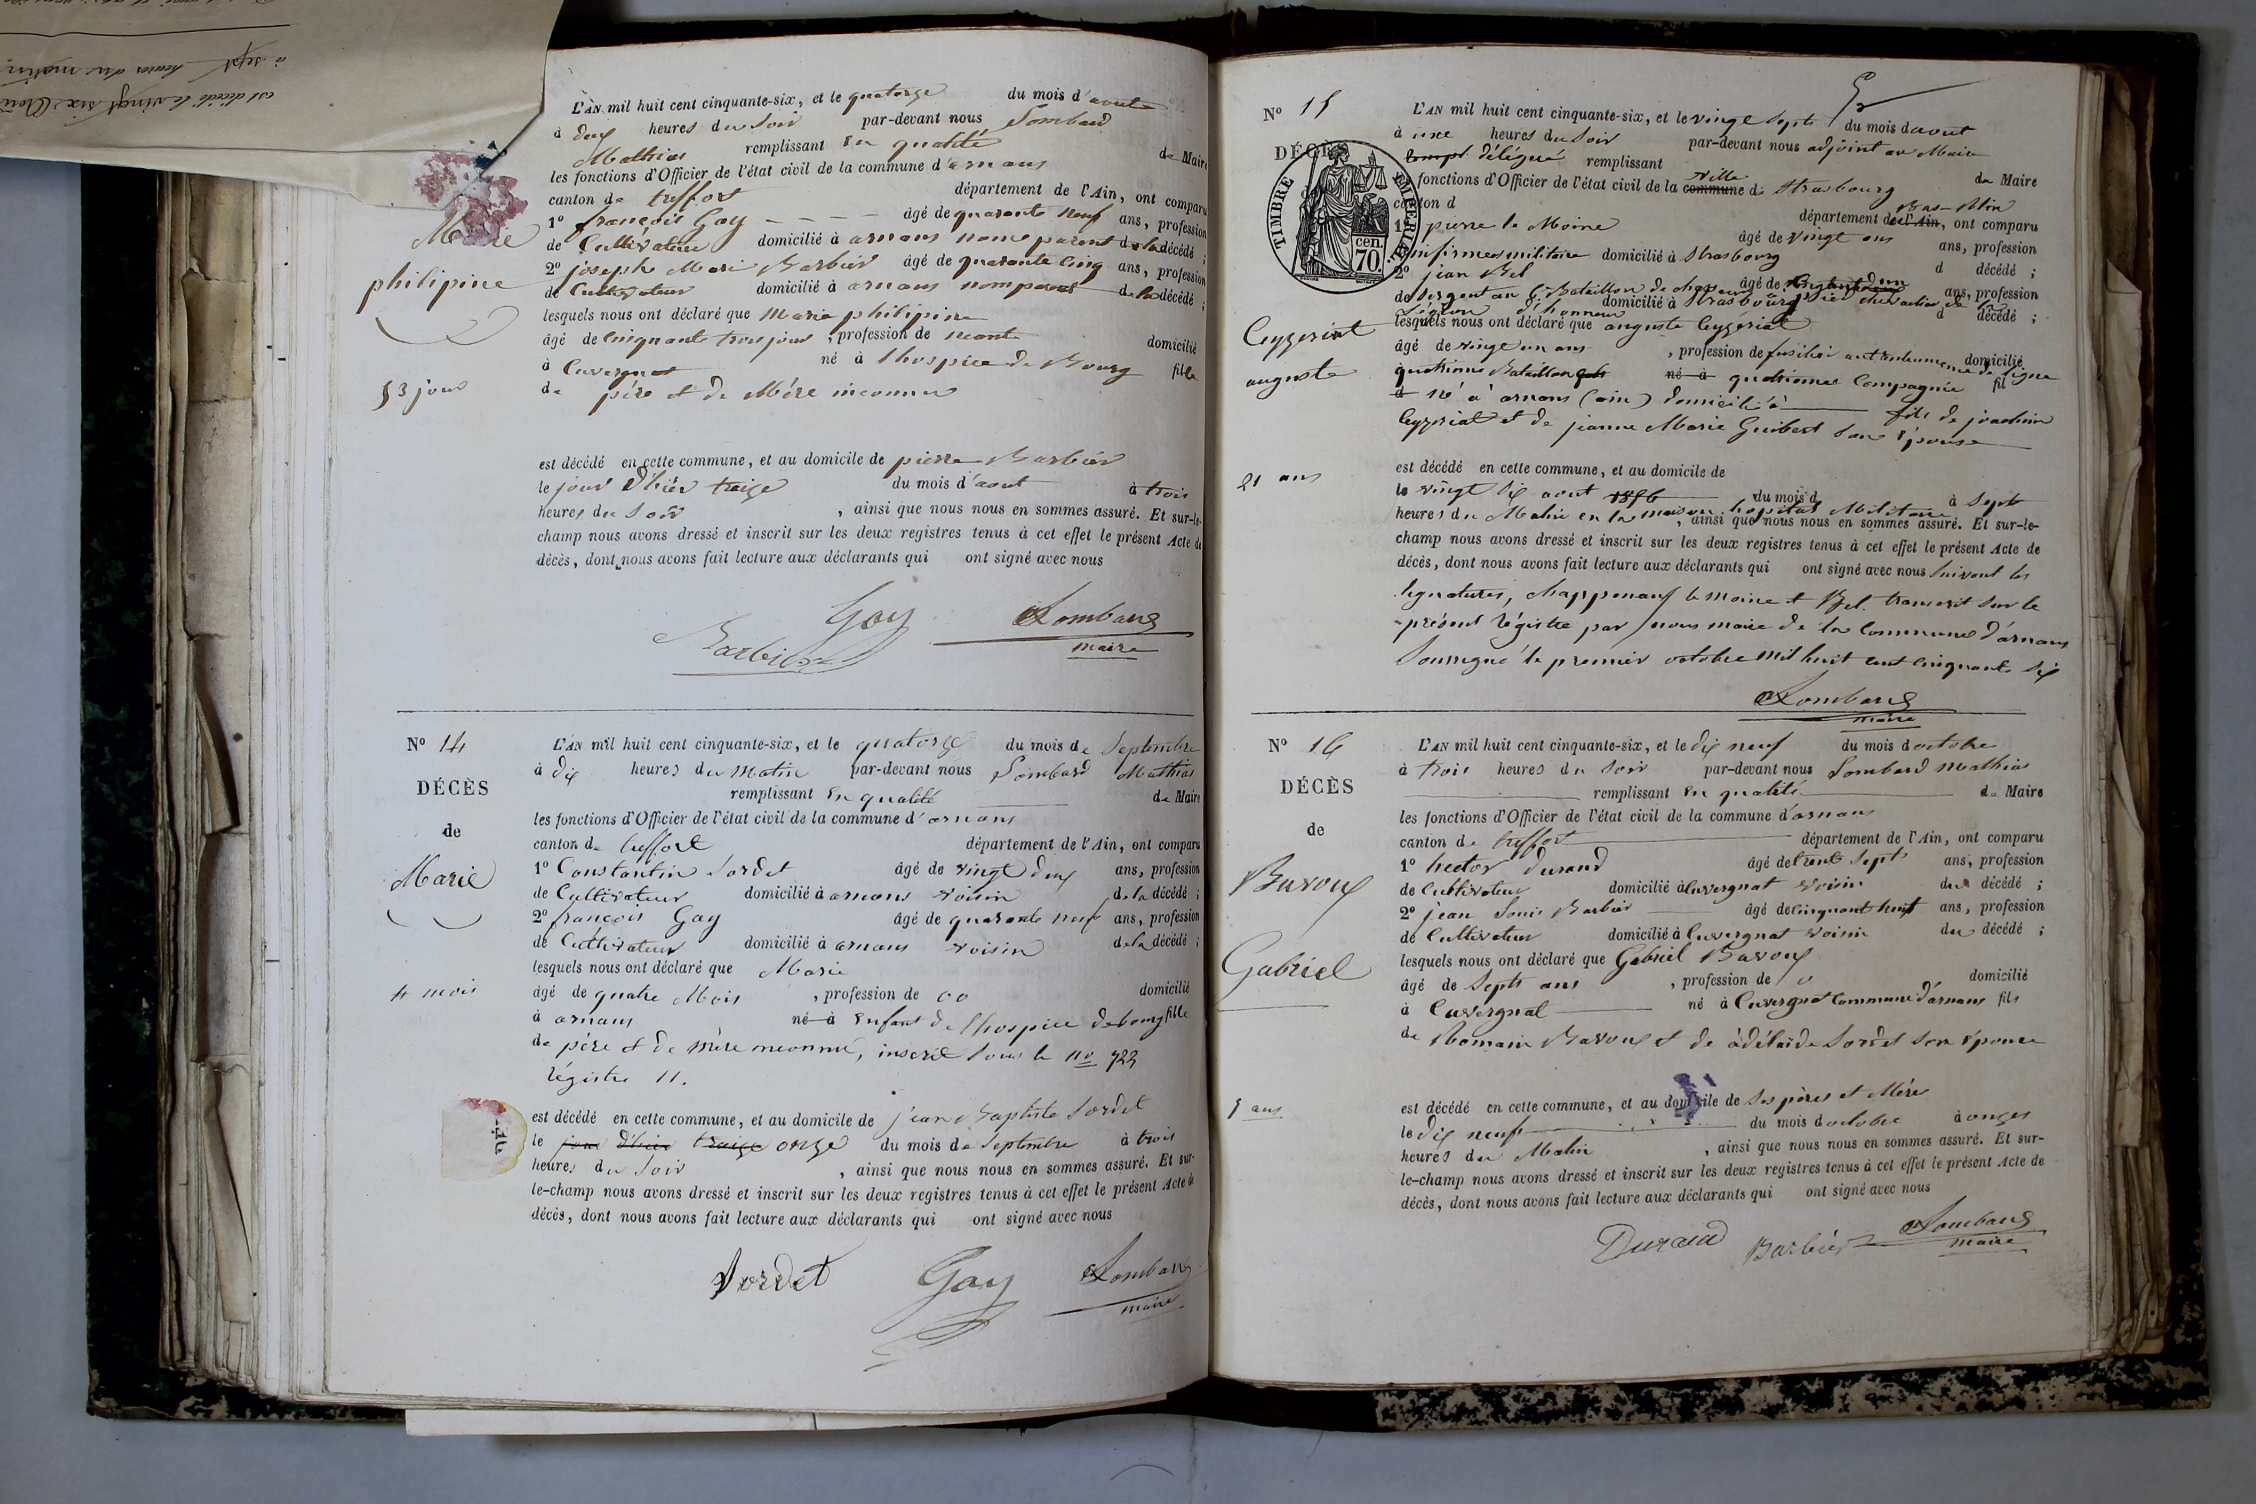 à sept heures du matin
est décédé le vingt six Août
L'AN mil huit cent cinquante-six, et le quatorze du mois d'aout
à deux heures du soir par-devant nous Lombard
Mathias remplissant En qualité de Maire
les fonctions d'Officier de l'état civil de la commune d'arnans
canton de treffort département de l'Ain, ont comparu
1º françois Gay âgé de quarante neuf ans, profession
de Cultivateur domicilié à arnans nom parent de la décédé ;
2º joseph Marie Barbier âgé de quarante cinq ans, profession
de Cultivateur domicilié à arnans nomparent de la décédé ;
lesquels nous ont déclaré que Marie philipine
âgé de cinquante trois jour , profession de neante domicilié
à Cuvergnat né à lhospice de Bourg fille
de père et de Mère inconnu
Marie
philipine
53 jour
est décédé en cette commune, et au domicile de pierre Barbier
le jour d'hièr traize du mois d'aout à trois
heures du Soir , ainsi que nous nous en sommes assuré. Et sur-le-
champ nous avons dressé et inscrit sur les deux registres tenus à cet effet le présent Acte de
décès, dont nous avons fait lecture aux déclarants qui ont signé avec nous
Barbier Gay Lombard
maire
Nº 14
DÉCÈS
de
Marie
4 mois
L'AN mil huit cent cinquante-six, et le quatorze du mois de Septembre
à dix heures du matin par-devant nous Lombard Mathias
remplissant En qualité de Maire
les fonctions d'Officier de l'état civil de la commune d'arnans
canton de treffort département de l'Ain, ont comparu
1º Constantin Sordet âgé de vingt deux ans, profession
de Cultivateur domicilié à arnans voisin de la décédé ;
2º françois Gay âgé de quarante neuf ans, profession
de Cultivateur domicilié à arnans voisin de la décédé ;
lesquels nous ont déclaré que Marie
âgé de quatre Mois , profession de 00 domicilié
à arnans né à Enfant de lhospice de bourg fille
de père et de mère inconnu, inscrit sous le nº 723
régistre 11.
est décédé en cette commune, et au domicile de jean Baptiste Sordet
le jour d'hier traize onze du mois de Septembre à trois
heures du Soir , ainsi que nous nous en sommes assuré. Et sur-
le-champ nous avons dressé et inscrit sur les deux registres tenus à cet effet le présent Acte de
décès, dont nous avons fait lecture aux déclarants qui ont signé avec nous
Sordet Gay Lombard
maire
Nº 15
DÉCÈS
TIMBRE IMPERIAL
70 cen.
Ceyzeriat
auguste
21 ans
L'AN mil huit cent cinquante-six, et le vingt Sept du mois d'aout
à une heures du Soir par-devant nous adjoint au Maire
délégué remplissant de Maire
fonctions d'Officier de l'état civil de la commune ville de Strasbourg
canton d département de l'Ain Bas-Rhin, ont comparu
1º pierre le Moine âgé de vingt ans ans, profession
infirmier militaire domicilié à Strasbourg d décédé ;
2º jean Bel âgé de ans, profession
de Sergent au 6e Bataillon de chasseurs domicilié à Strasbourg chevalier de la d décédé ;
Légion d'honneur
lesquels nous ont déclaré que auguste Ceyzériat
âgé de vingt un ans , profession de fusilier au de ligne domicilié
quatrième Bataillon né à quatrième Compagnie fil
d né à arnans (ain) domicilié à fils de joachim
Ceyzeriat et de jeanne Marie Guibert Son épouse
est décédé en cette commune, et au domicile de
le vingt Six aout 1856 du mois d à Sept
heures du Matin en la maison hopital Militaire , ainsi que nous nous en sommes assuré. Et sur-le-
champ nous avons dressé et inscrit sur les deux registres tenus à cet effet le présent Acte de
décès, dont nous avons fait lecture aux déclarants qui ont signé avec nous Suivent les
signatures, le moine et Bel. transcrit Sur le
présent régistre par nous maire de la Commune d'arnans
Soussigné le premier octobre mil huit cent cinquante Six
Lombard
maire
Nº 16
DÉCÈS
de
Bavoux
Gabriel
7 ans
L'AN mil huit cent cinquante-six, et le dix neuf du mois d'octobre
à trois heures du Soir par-devant nous Lombard Mathias
remplissant En qualité de Maire
les fonctions d'Officier de l'état civil de la commune d'arnans
canton de treffort département de l'Ain, ont comparu
1º hector Durand âgé de trente Sept ans, profession
de Cultivateur domicilié à Cuvergnat voisin du décédé ;
2º jean Louis Barbier âgé de cinquant huit ans, profession
de Cultivateur domicilié à Cuvergnat voisin du décédé ;
lesquels nous ont déclaré que Gabriel Bavoux
âgé de Septs ans , profession de 0 domicilié
à Cuvergnat né à Cuvergnat Commune d'arnans fils
de Romain Bavoux et de adélaïde Sordet son épouse
est décédé en cette commune, et au domicile de Ses pères et Mère
le dix neuf du mois d'octobre à onzes
heures du Matin , ainsi que nous nous en sommes assuré. Et sur-
le-champ nous avons dressé et inscrit sur les deux registres tenus à cet effet le présent Acte de
décès, dont nous avons fait lecture aux déclarants qui ont signé avec nous
Durand Barbier Lombard
maire